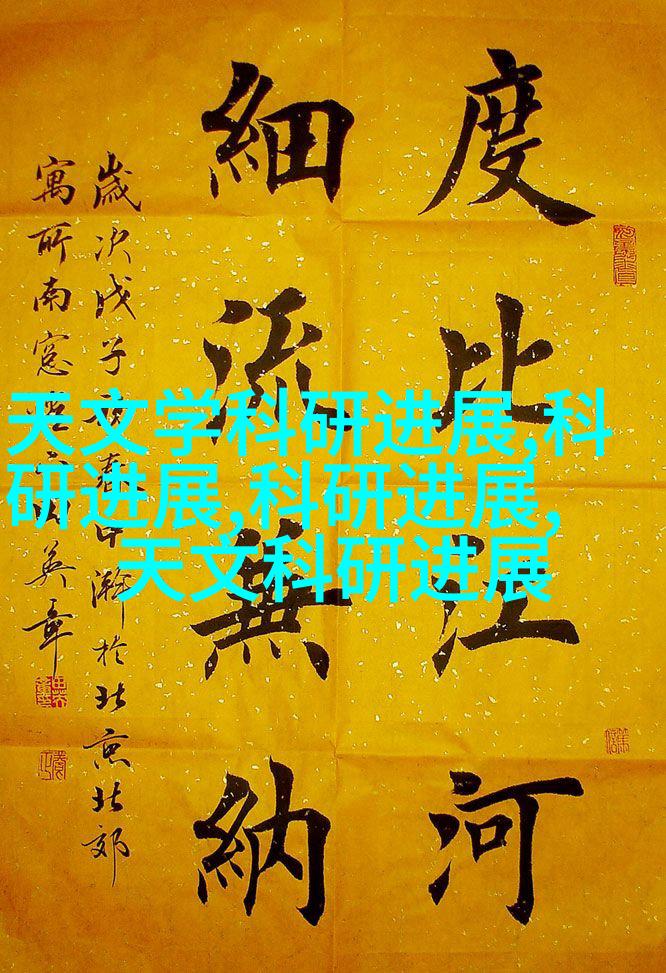 度比江河
細流無納
歲次戊子春中澣於北京北郊
寓所南窓英章
天文学科研进展,科
研进展,科研进展,
天文科研进展